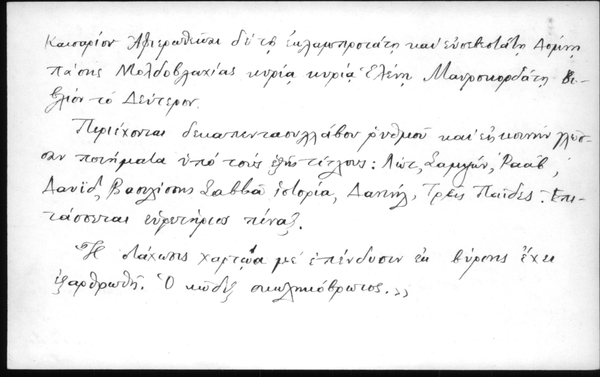 Καισαρίον Ἀφιερωθεῖσα δὲ τῇ ἐκλαμπροτάτῃ καὶ εὐσεβεστάτῃ Δόμνῃ
πάσης Μολδοβλαχίας κυρίᾳ κυρίᾳ Ἑλένῃ Μαυροκορδάτῃ Βι-
βλίον τὸ Δεύτερον.
Περιέχονται δεκαπεντασυλλάβου ῥυθμοῦ καὶ εἰς κοινὴν γλῶσ-
σαν ποιήματα ὑπὸ τοὺς ἑξῆς τίτλους: Λώτ, Σαμψών, Ῥαάβ,
Δαυΐδ, Βασιλίσσης Σαββᾶ ἱστορία, Δανιήλ, Τρεῖς Παῖδες. Ἐπι-
τάσσεται εὑρετήριος πίναξ.
Ἡ στάχωσις χαρτῴα μὲ ἐπένδυσιν ἐκ βύρσης ἔχει
ἐξαρθρωθῆ. Ὁ κῶδιξ σκωληκόβρωτος.»